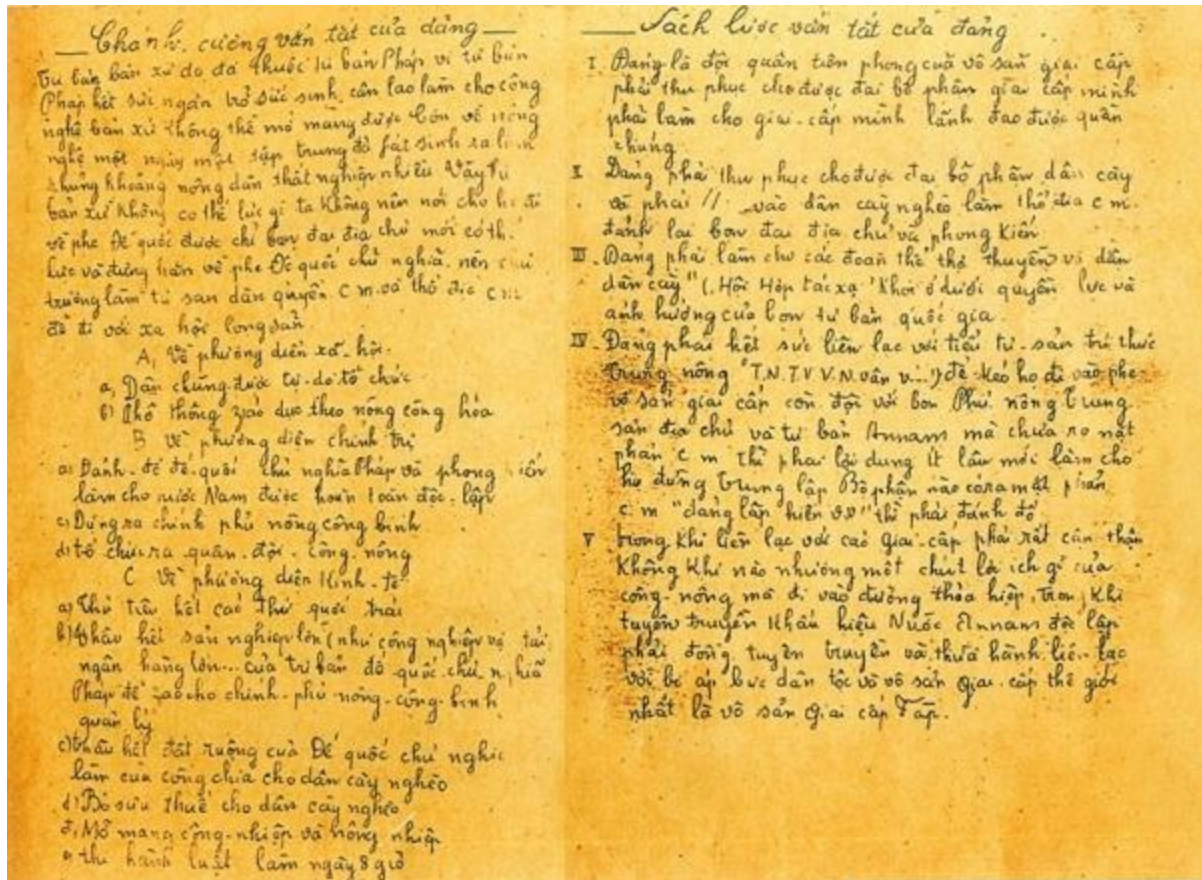 Chánh cương vắn tắt của đảng
Tư bản bản xứ do đó thuộc tư bản Pháp vì tư bản
Pháp hết sức ngăn trở sức sinh cần lao làm cho công
nghệ bản xứ không thể mở mang được Còn về nông
nghệ một ngày một tập trung đã fát sinh ra
khủng khoảng nông dân thất nghiệp nhiều Vậy Tư
bản xứ không có thế lực gì ta không nên nói cho họ đi
về phe Đế quốc được chỉ bọn đại địa chủ mới có th.
lực và đứng hẳn về phe Đế quốc chủ nghĩa nên chủ
trương làm tư sản dân quyền c m và thổ địa c m
để đi với xã hội cộng sản
A, Về phương diện xã-hội.
a, Dân chúng được tự-do tổ chức
Phổ thông záo dục theo nông công hóa
B Về phương diện chính trị
a) Đánh-đổ đế-quốc chủ nghĩa Pháp và phong kiến
làm cho nước Nam được hoàn toàn độc-lập
c) Dựng ra chính phủ nông công binh
d) tổ chức ra quân-đội-công-nông
C Về phương diện Kinh-tế
a) Thủ tiêu hết các thứ quốc trái
thâu hết sản nghiệp lớn (như công nghiệp vận tải
ngân hàng lớn... của tư bản đế quốc chủ nghĩa
Pháp để zao cho chính-phủ-nông-công-binh
quản lý
c) thâu hết đất ruộng của Đế quốc chủ nghĩa
làm của công chia cho dân cày nghèo
d) Bỏ sưu thuế cho dân cày nghèo
đ, Mở mang công-nhiệp và nông nhiệp
thi hành luật làm ngày 8 giờ
Sách lược vắn tắt của đảng
I Đảng là đội quân tiên phong của vô sản giai cấp
phải thu phục cho được đại bộ phận giai cấp mình
phải làm cho giai-cấp mình lãnh đạo được quần
chúng
II Đảng phải thu phục cho được đại bộ phận dân cày
và phải // vào dân cày nghèo làm thổ địa c m.
đánh lại bọn đại địa chủ và phong kiến
III. Đảng phải làm cho các đoàn thể thợ thuyền và dân
dân cày" (. Hội Hợp tác xạ' Khỏi ở dưới quyền lực và
ảnh hưởng của bọn tư bản quốc gia.
IV. Đảng phải hết sức liên lạc với tiểu tư-sản trí thức
trung nông "T.N.T.V V.N vân v...") để kéo họ đi vào phe
vô sản giai cấp còn đội với bọn Phú nông trung
sản địa chủ và tư bản Annam mà chưa rõ mặt
phản c m thì phải lợi dụng ít lâu mới làm cho
họ đứng trung lập Bộ phận nào đã ra mặt phản
c m "đảng lập hiến vv" thì phải đánh đổ
V trong khi liên lạc với các giai-cấp phải rất cẩn thận
Không khi nào nhường một chút lợi ích gì của
công-nông mà đi vào đường thỏa hiệp, trong khi
tuyên truyền khẩu hiệu Nước Annam độc lập
phải đồng tuyên truyền và thưa hành liên-lạc
với bị áp bức dân tộc và vô sản giai-cấp thế giới
nhất là vô sản giai cấp Fáp.